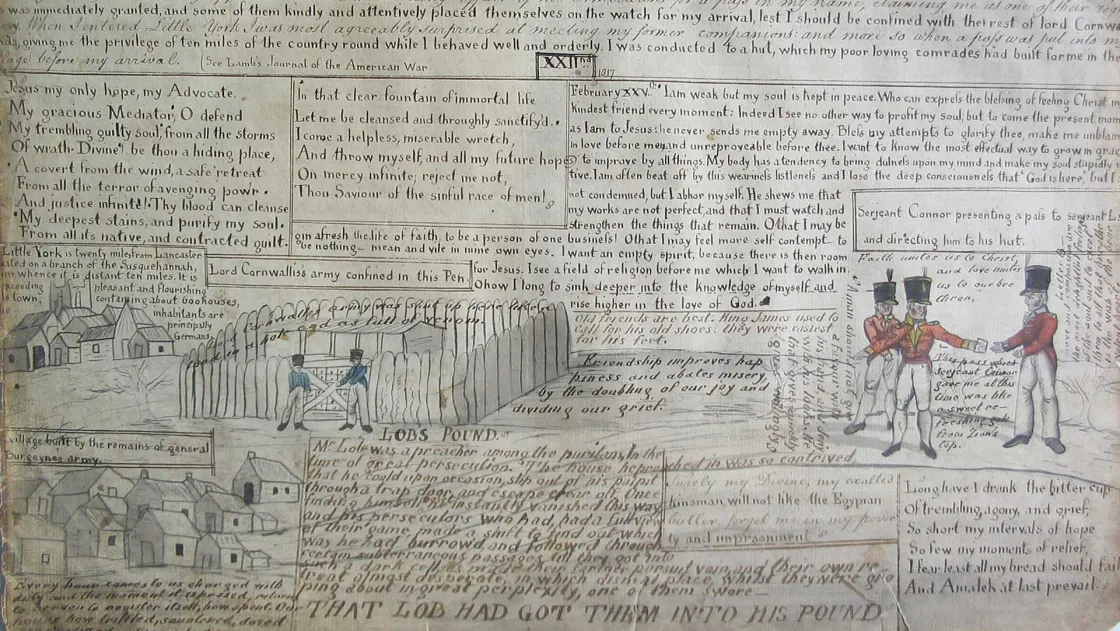 was immediately granted, and some of them kindly and attentively placed themselves on the watch for my arrival, lest I should be confined with the rest of lord Cornw
When I entered Little York I was most agreeably surprised at meeting my former companions: and more so when a pass was put into m
as, giving me the privilege of ten miles of the country round while I behaved well and orderly. I was conducted to a hut, which my poor loving comrades had built for me in the
age before my arrival. (See Lamb's Journal of the American War
XXIInd
1817
Jesus my only hope, my Advocate.
My gracious Mediator, O defend
My trembling guilty soul, from all the storms
Of wrath Divine! be thou a hiding place,
A covert from the wind, a safe retreat
From all the terror of avenging pow'r.
And justice infinite! Thy blood can cleanse
My deepest stains, and purify my soul.
From all its native, and contracted guilt.
In that clear fountain of immortal life
Let me be cleansed and throughly sanctify'd.
I come a helpless, miserable wretch,
And throw myself, and all my future hopes
On mercy infinite; reject me not,
Thou Saviour of the sinful race of men!
February XXVth. I am weak but my soul is kept in peace. Who can express the blessing of feeling Christ
kindest friend every moment: Indeed I see no other way to profit my soul, but to come the present mom
as I am to Jesus: he never sends me empty away. Bless my attempts to glorify thee, make me unblam
in love before men, and unreproveable before thee. I want to know the most effectual way to grow in grac
to improve by all things. My body has a tendency to bring dulness upon my mind and make my soul stupid,
tive. I am often beat off by this weariness listlenels and I lose the deep consciousnels that God is here, but I
not condemned, but I abhor myself. He shews me that
my works are not perfect, and that I must watch and
strengthen the things that remain. O that I may be
gin afresh the life of faith, to be a person of one business! O that I may feel more self contempt to
be nothing mean and vile in mine own eyes. I want an empty spirit, because there is then room
for Jesus. I see a field of religion before me which I want to walk in
O how I long to sink deeper into the knowledge of myself, and
rise higher in the love of God.
Serjeant Connor presenting a pass to serjeant L
and directing him to his hut.
Little York is twenty miles from Lancaster
ated on a branch of the Susquehannah,
m whence it is distant ten miles. It is
pleasant and flourishing
town, containing about 600 houses,
inhabitants are
principally
Germans.
Lord Cornwallis's army confined in this Pen
Cornwallis army was shut up here
as full of venom
Faith unites us to Christ,
and love unites
us to our bre
thren.
Old friends are best. King James used to
call for his old shoes: they were easiest
for his feet.
Friendship improves hap
piness and abates misery,
by the doubling of our joy and
dividing our grief.
This pass which
serjeant Connor
gave me at this
time was like
a sweet re-
freshing gale
from Zion's
top.
LOBS POUND.
village built by the remains of general
Burgoynes army.
Mr. Lob was a preacher among the puritans, In the
time of great persecution. The house he preached in was so contrived
that he could upon occasion, slip out of his pulpit
through a trap door, and escape clear off. Once
finding himself he instantly vanished this way
and his persecutors who had, had a full view
of their game made a shift to find out which
way he had burrowed, and followed through
certain subterraneous passages till they got into
such a dark cell, as made their farther pursuit vain, and their own re-
treat almost desperate, in which dismal place, whilst they were gro
ping about in great perplexity, one of them swore
THAT LOB HAD GOT THEM INTO HIS POUND
Surely my Divine, my exalted
kinsman, will not like the Egyptian
butler forget me in my pover
ty and imprisonment
Long have I drank the bitter cup
Of trembling, agony, and grief;
So short my intervals of hope
So few my moments of relief,
I fear least all my bread should fail
And Amalek at last prevail.
Every hour comes to us charged with
duty, and the moment it is past, return
to heaven to register itself, how spent. Our
hours how trifled, sauntered, dozed